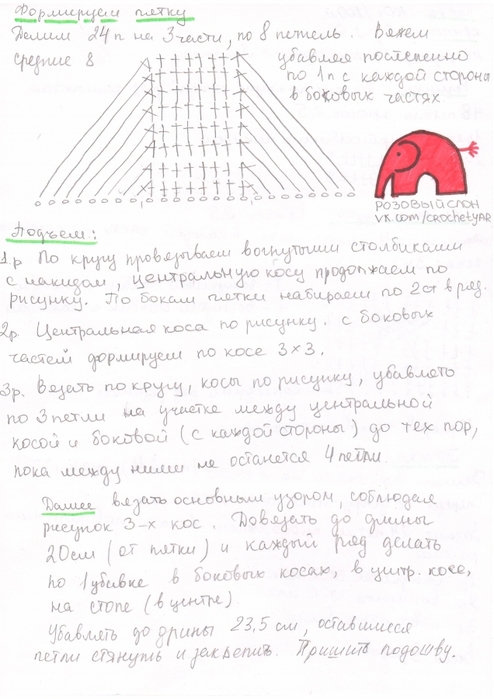 Формируем пятку
Делим 24п на 3 части, по 8 петель. Вяжем
средние 8
убавляя постепенно
по 1п с каждой стороны
в боковых частях
РОЗОВЫЙ СЛОН
VK.COM/CROCHETYAR
Подъем:
1р. По кругу провязываем вогнутыми столбиками
с накидом, центральную косу продолжаем по
рисунку. По бокам пятки набираем по 2ст в ряд.
2р. Центральная коса по рисунку. с боковых
частей формируем по косе 3×3.
3р. Вязать по кругу, косы по рисунку, убавлять
по 3 петли на участке между центральной
косой и боковой (с каждой стороны) до тех пор,
пока между ними не останется 4 петли.
Далее вязать основным узором, соблюдая
рисунок 3-х кос. Довязать до длины
20см (от пятки) и каждый ряд делать
по 1 убавке в боковых косах, в центр. косе,
на стопе (в центре)
Убавлять до длины 23,5 см, оставшиеся
петли стянуть и закрепить. Пришить подошву.